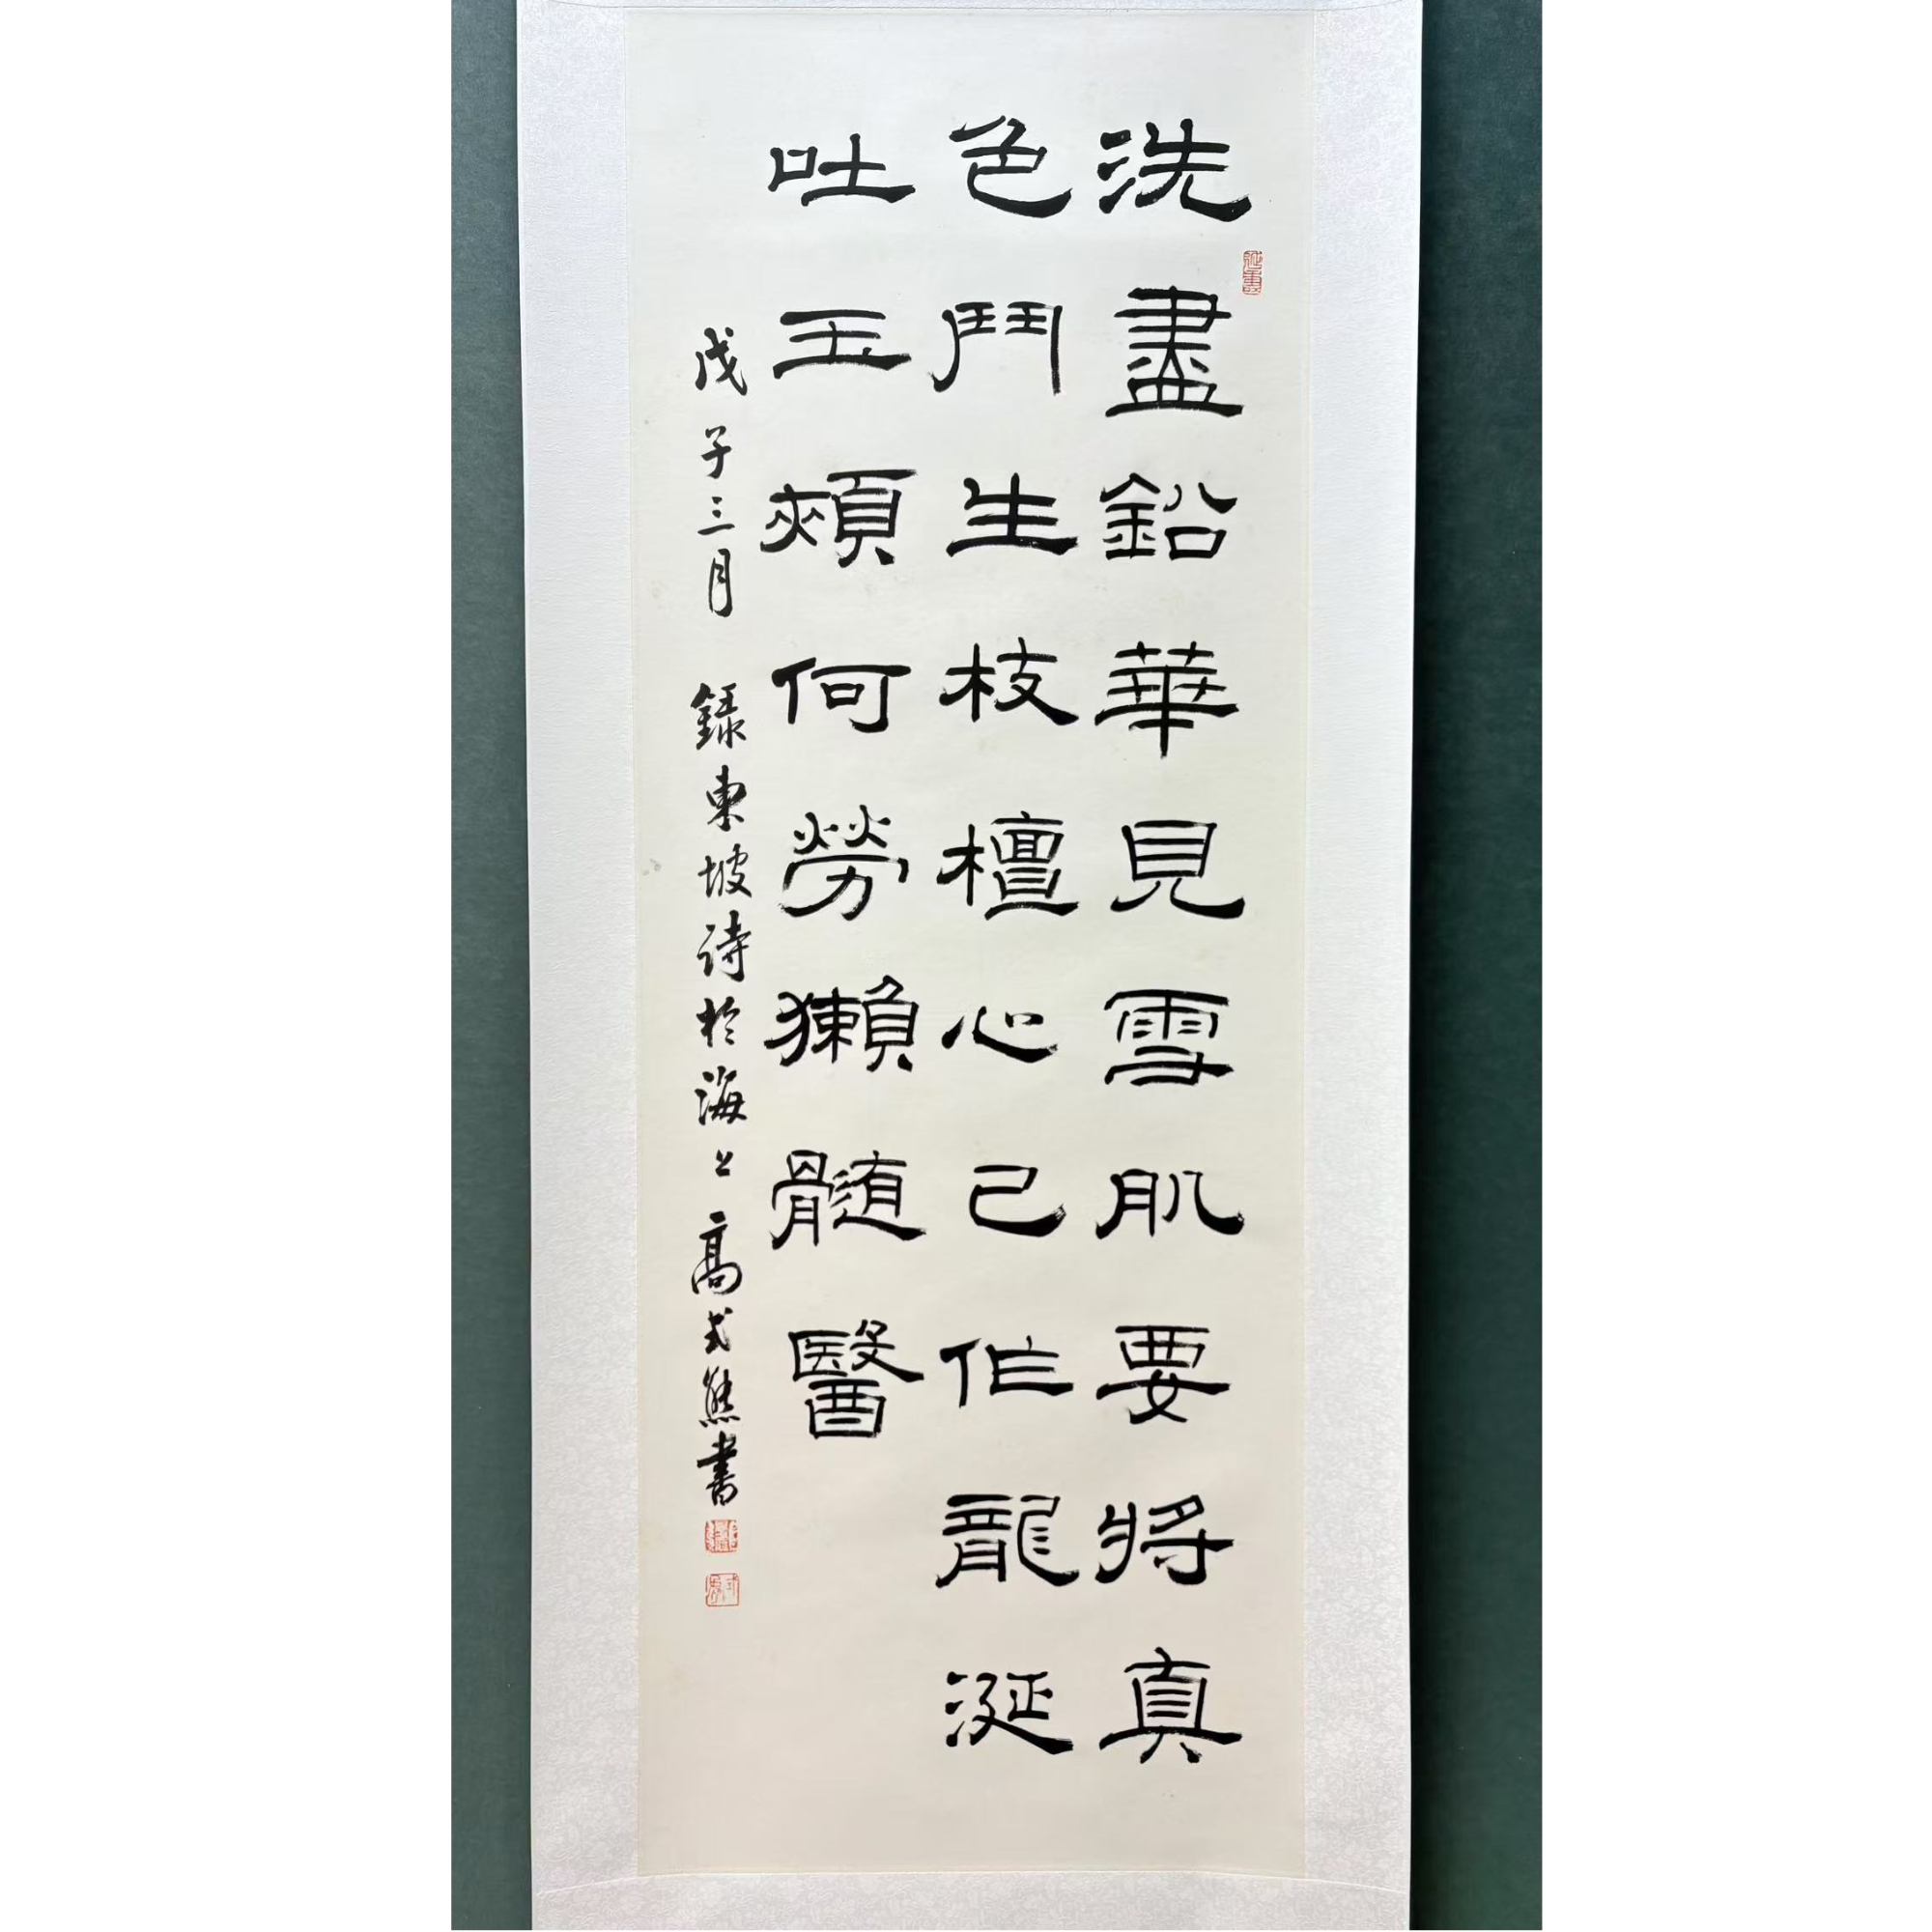 洗盡鉛華見雪肌要將真
色鬥生枝檀心已作龍涎
吐玉頰何勞獺髓醫
戊子三月 錄東坡詩於海上高式熊書